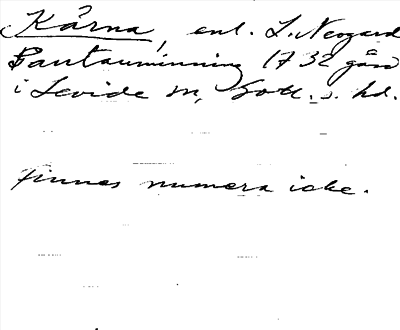 Kärna, enl. L. Neogard
Gautauminning 1732 gård
i Levide sn, Gotl. s. hd.
Finnes numera icke.